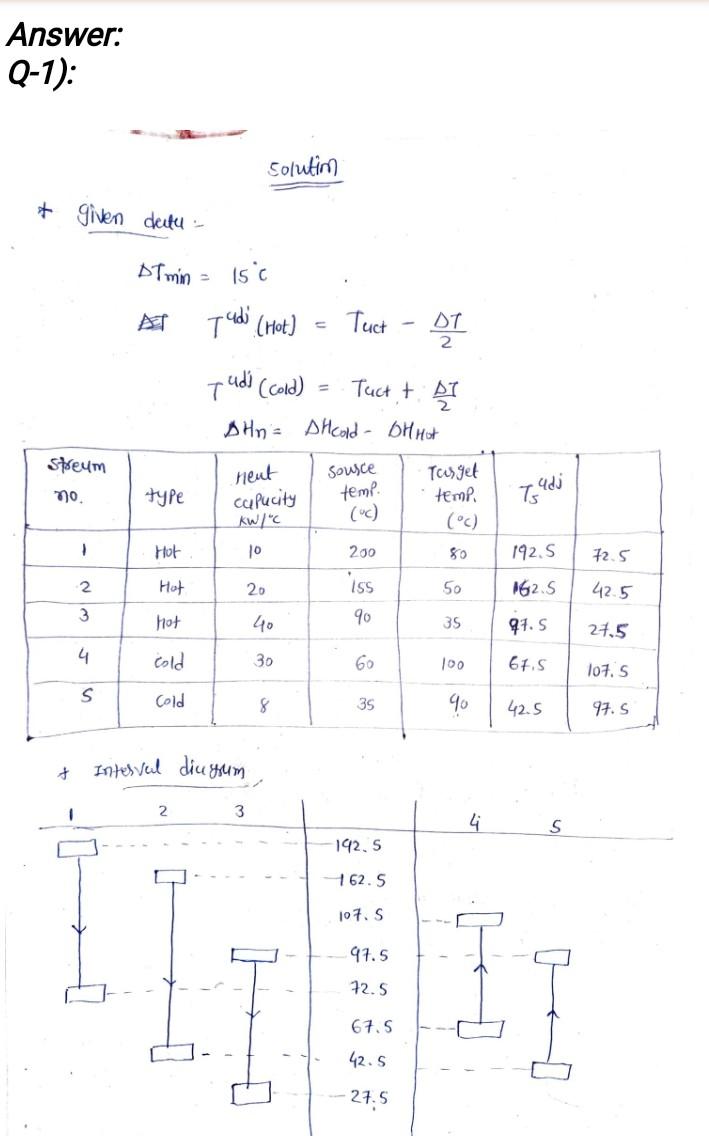 Answer:
Q-1):
Solution
* given data :-
ΔTmin = 15°C
T adj (Hot) = Tact - ΔT/2
T adj (cold) = Tact + ΔT/2
ΔHn = ΔHcold - ΔHHot
Stream no. type Heat capacity kW/°C Source temp. (°C) Target temp. (°C) Ts adj
1 Hot 10 200 80 192.5 72.5
2 Hot 20 155 50 162.5 42.5
3 Hot 40 90 35 97.5 27.5
4 Cold 30 60 100 67.5 107.5
5 Cold 8 35 90 42.5 97.5
* Interval diagram
1 2 3 4 5
192.5
162.5
107.5
97.5
72.5
67.5
42.5
27.5